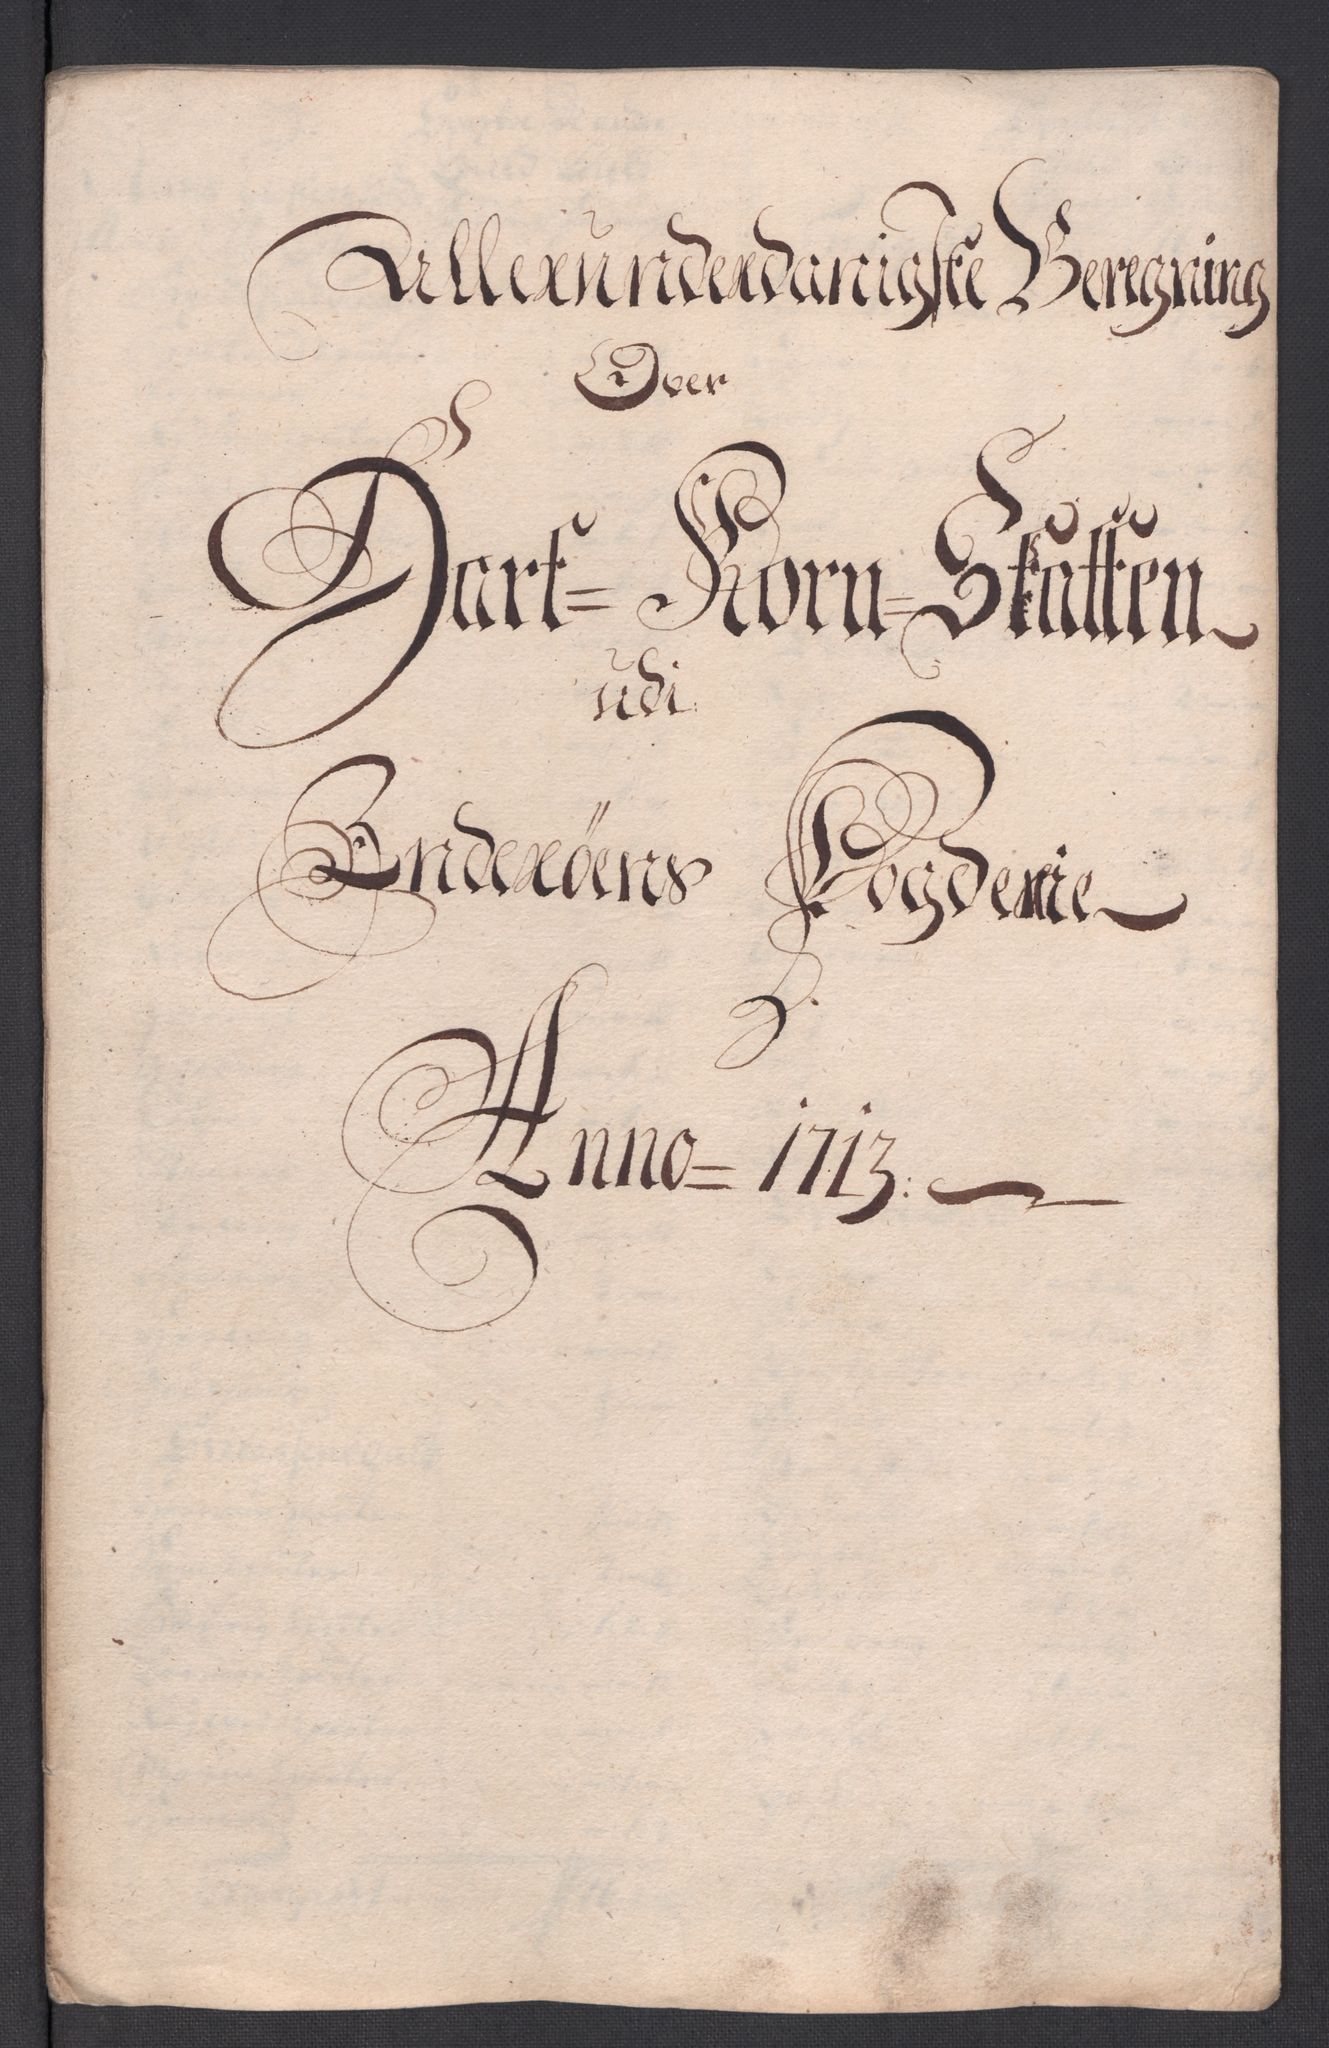 Allerunderdanigste Beregning
Over
Hart= Korn=Skatten
udi
Inderöens Fogderie
Anno= 1713: